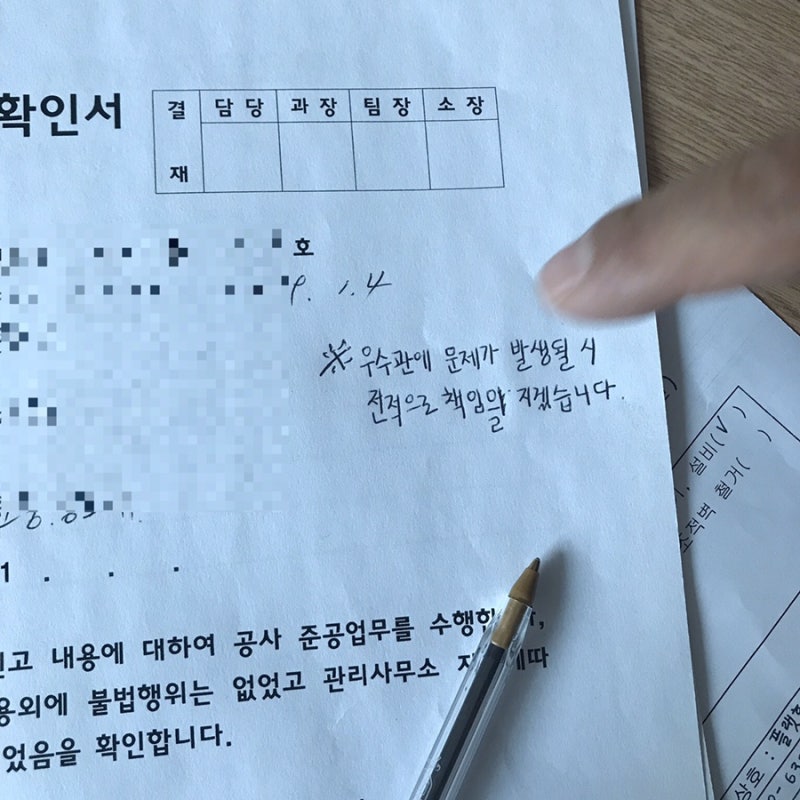 확인서
결 재 담 당 과 장 팀 장 소 장
호
9. 1. 4
※ 우수관에 문제가 발생될 시
전적으로 책임을 지겠습니다.
1 . . .
고 내용에 대하여 공사 준공업무를
용외에 불법행위는 없었고 관리사무소
었음을 확인합니다.
설비(V)
조적벽 철거( )
상호 :